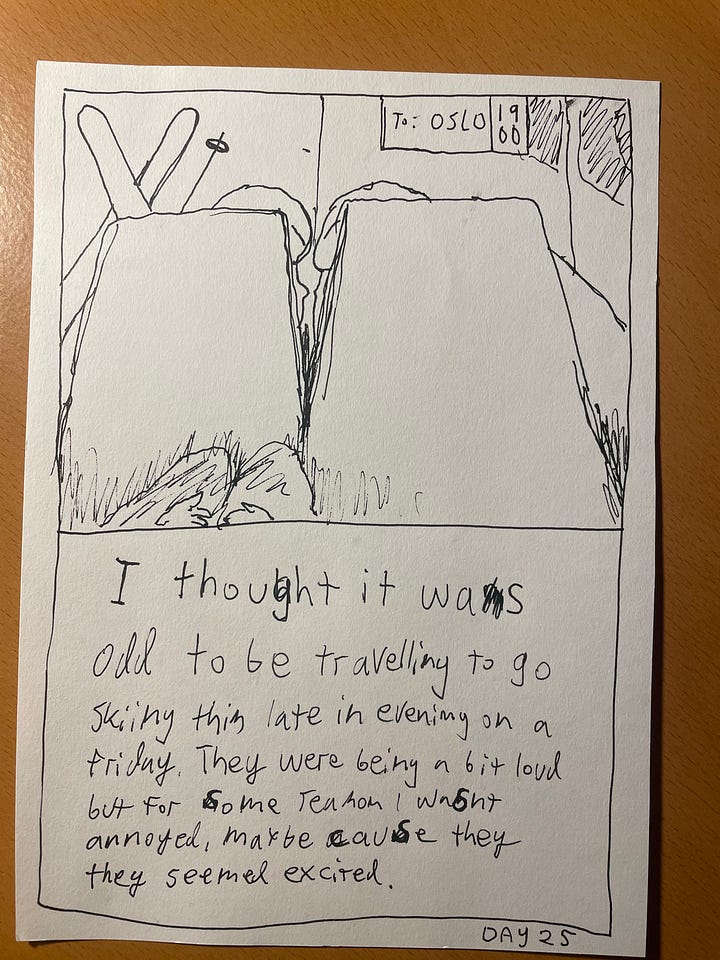 To: OSLO 19
00
I thought it was
odd to be travelling to go
skiing this late in evening on a
friday. They were being a bit loud
but for some reason I wasnt
annoyed, maybe cause they
they seemed excited.
DAY 25